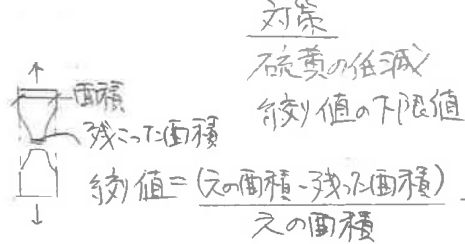 対策
硫黄の低減
絞り値の下限値
面積
残こった面積
絞り値=(元の面積-残った面積)
元の面積